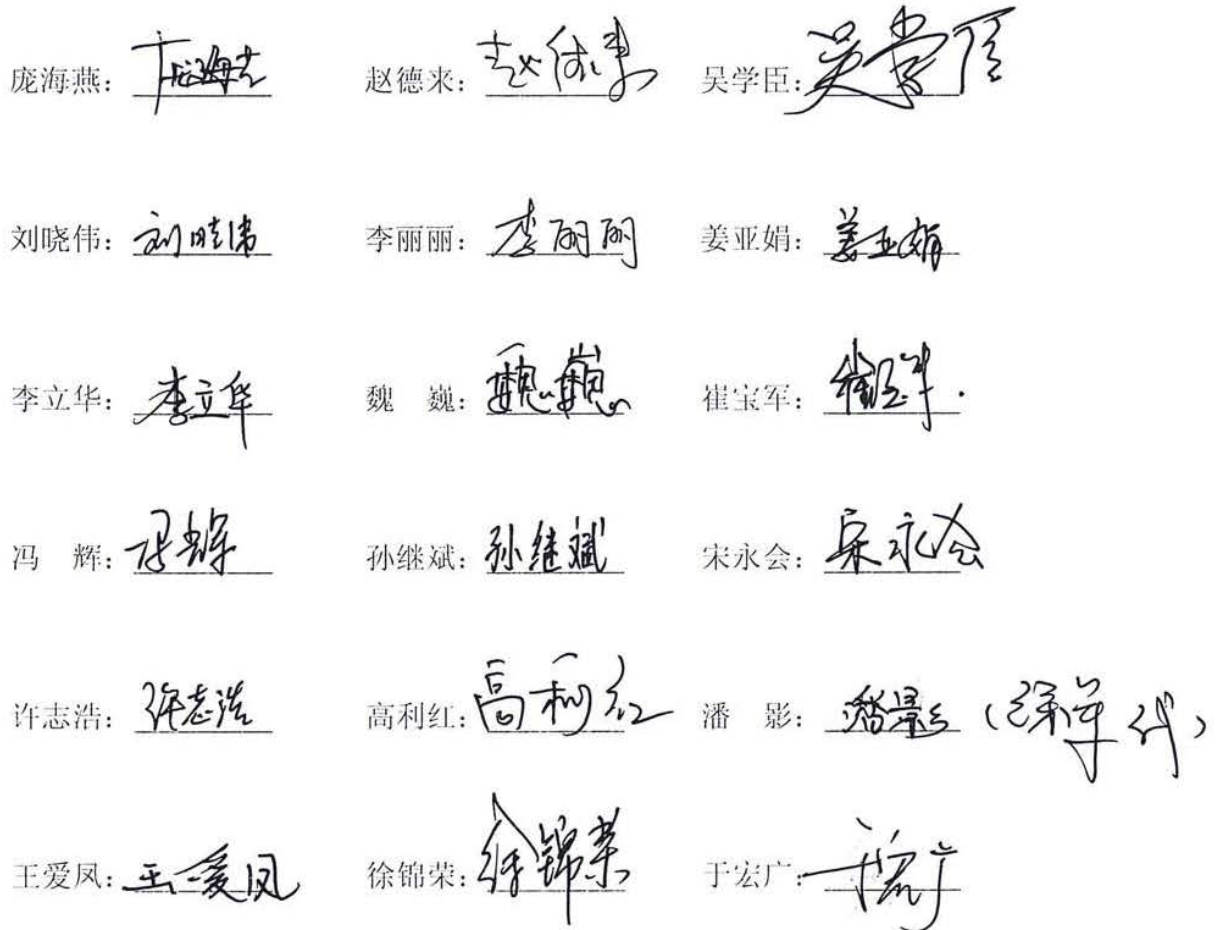 庞海燕：庞海燕 赵德来：赵德来 吴学臣：吴学臣
刘晓伟：刘晓伟 李丽丽：李丽丽 姜亚娟：姜亚娟
李立华：李立华 魏 巍：魏巍 崔宝军：崔宝军.
冯 辉：冯辉 孙继斌：孙继斌 宋永会：宋永会
许志浩：许志浩 高利红：高利红 潘 影：潘影（代）
王爱凤：王爱凤 徐锦荣：徐锦荣 于宏广：于宏广